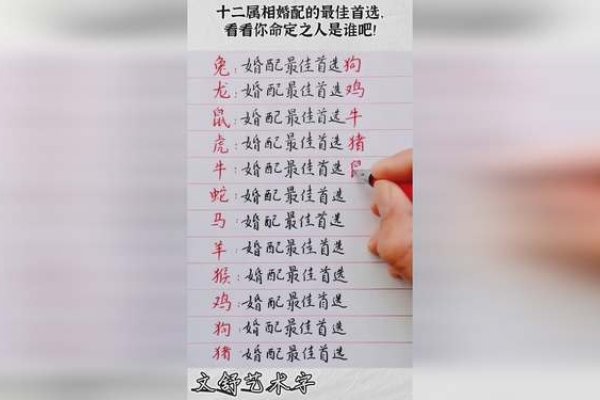 十二属相婚配的最佳首选,
看看你命定之人是谁吧!
兔:婚配最佳首选狗
龙:婚配最佳首选鸡
鼠:婚配最佳首选牛
虎:婚配最佳首选猪
牛:婚配最佳首选
蛇:婚配最佳首选
马:婚配最佳首选
羊:婚配最佳首选
猴:婚配最佳首选
鸡:婚配最佳首选
狗:婚配最佳首选
猪:婚配最佳首选
文舒艺术字